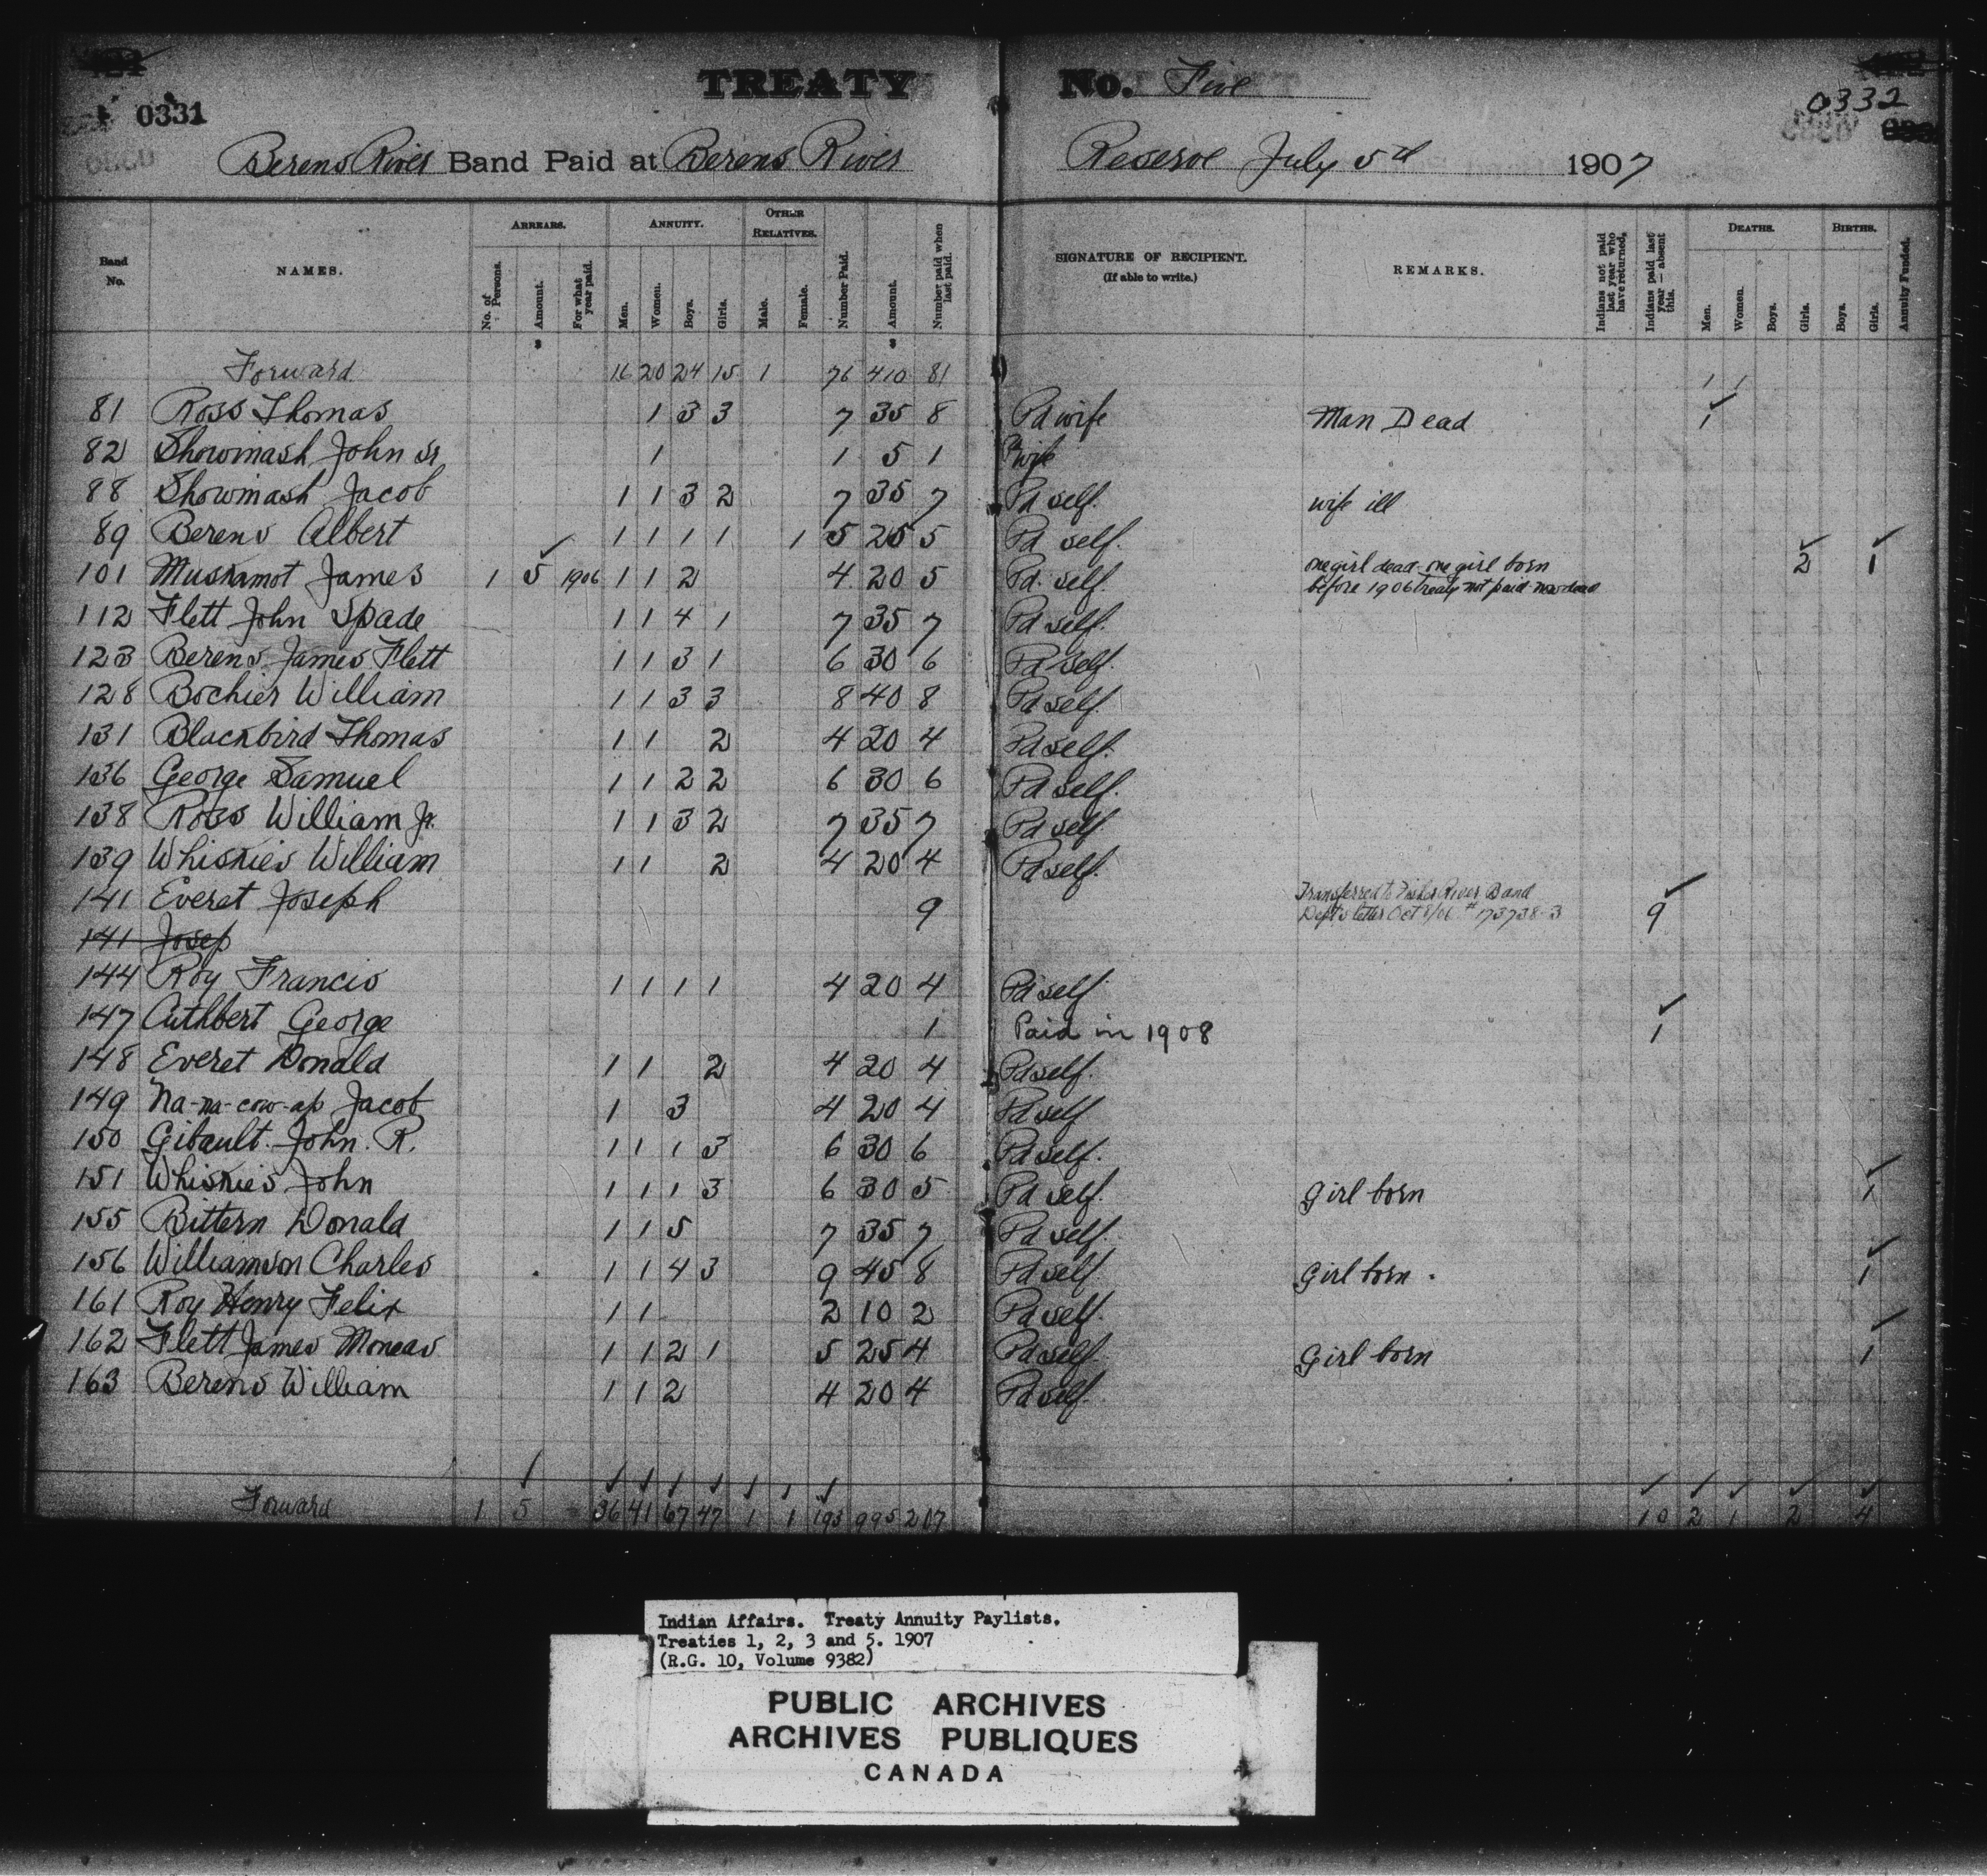 TREATY No. Five
0331 0332
Berens River Band Paid at Berens River Reserve July 5th 1907
Band No. NAMES. ARREARS. ANNUITY. OTHER RELATIVES. SIGNATURE OF RECIPIENT. (If able to write.) REMARKS. DEATHS. BIRTHS.
No. of Persons. Amount. For what year paid. Men. Women. Boys. Girls. Male. Female. Number Paid. Amount. Number paid when last paid. Indians not paid last year who have returned. Indians paid last year — absent this. Men. Women. Boys. Girls. Boys. Girls. Annuity Funded.
$ $
Forward 16 20 24 15 1 76 410 81 1 1
81 Ross Thomas 1 3 3 7 35 8 Pd wife Man Dead 1
82 Showmash John Sr 1 1 5 1 Pd wife
88 Showmash Jacob 1 1 3 2 7 35 7 Pd self. wife ill
89 Berens Albert 1 1 1 1 1 5 25 5 Pd self.
101 Muskamot James 1 5 1906 1 1 2 4 20 5 Pd. self. one girl dead - one girl born 2 1
before 1906 treaty not paid now dead
112 Flett John Spade 1 1 4 1 7 35 7 Pd self.
123 Berens James Flett 1 1 3 1 6 30 6 Pd self.
128 Bochier William 1 1 3 3 8 40 8 Pd self.
131 Blackbird Thomas 1 1 2 4 20 4 Pd self.
136 George Samuel 1 1 2 2 6 30 6 Pd self.
138 Ross William Jr. 1 1 3 2 7 35 7 Pd self.
139 Whiskies William 1 1 2 4 20 4 Pd self.
141 Everet Joseph 9 Transferred to Fisher River Band 9
Dept's letter Oct 8/06 # 173738-3
141 Josep
144 Roy Francis 1 1 1 1 4 20 4 Pd self
147 Cuthbert George 1 Paid in 1908 1
148 Everet Donald 1 1 2 4 20 4 Pd self.
149 Na-na-cow-ap Jacob 1 3 4 20 4 Pd self
150 Gibault. John. R. 1 1 1 3 6 30 6 Pd self.
151 Whiskies John 1 1 1 3 6 30 5 Pd self. Girl born 1
155 Bittern Donald 1 1 5 7 35 7 Pd self.
156 Williamson Charles 1 1 4 3 9 45 8 Pd self. Girl born. 1
161 Roy Henry Felix 1 1 2 10 2 Pd self.
162 Flett James Moneas 1 1 2 1 5 25 4 Pd self. Girl born 1
163 Berens William 1 1 2 4 20 4 Pd self.
Forward 1 5 36 41 67 47 1 1 193 995 207 10 2 1 2 4
Indian Affairs. Treaty Annuity Paylists.
Treaties 1, 2, 3 and 5. 1907
(R.G. 10, Volume 9382)
PUBLIC ARCHIVES
ARCHIVES PUBLIQUES
CANADA